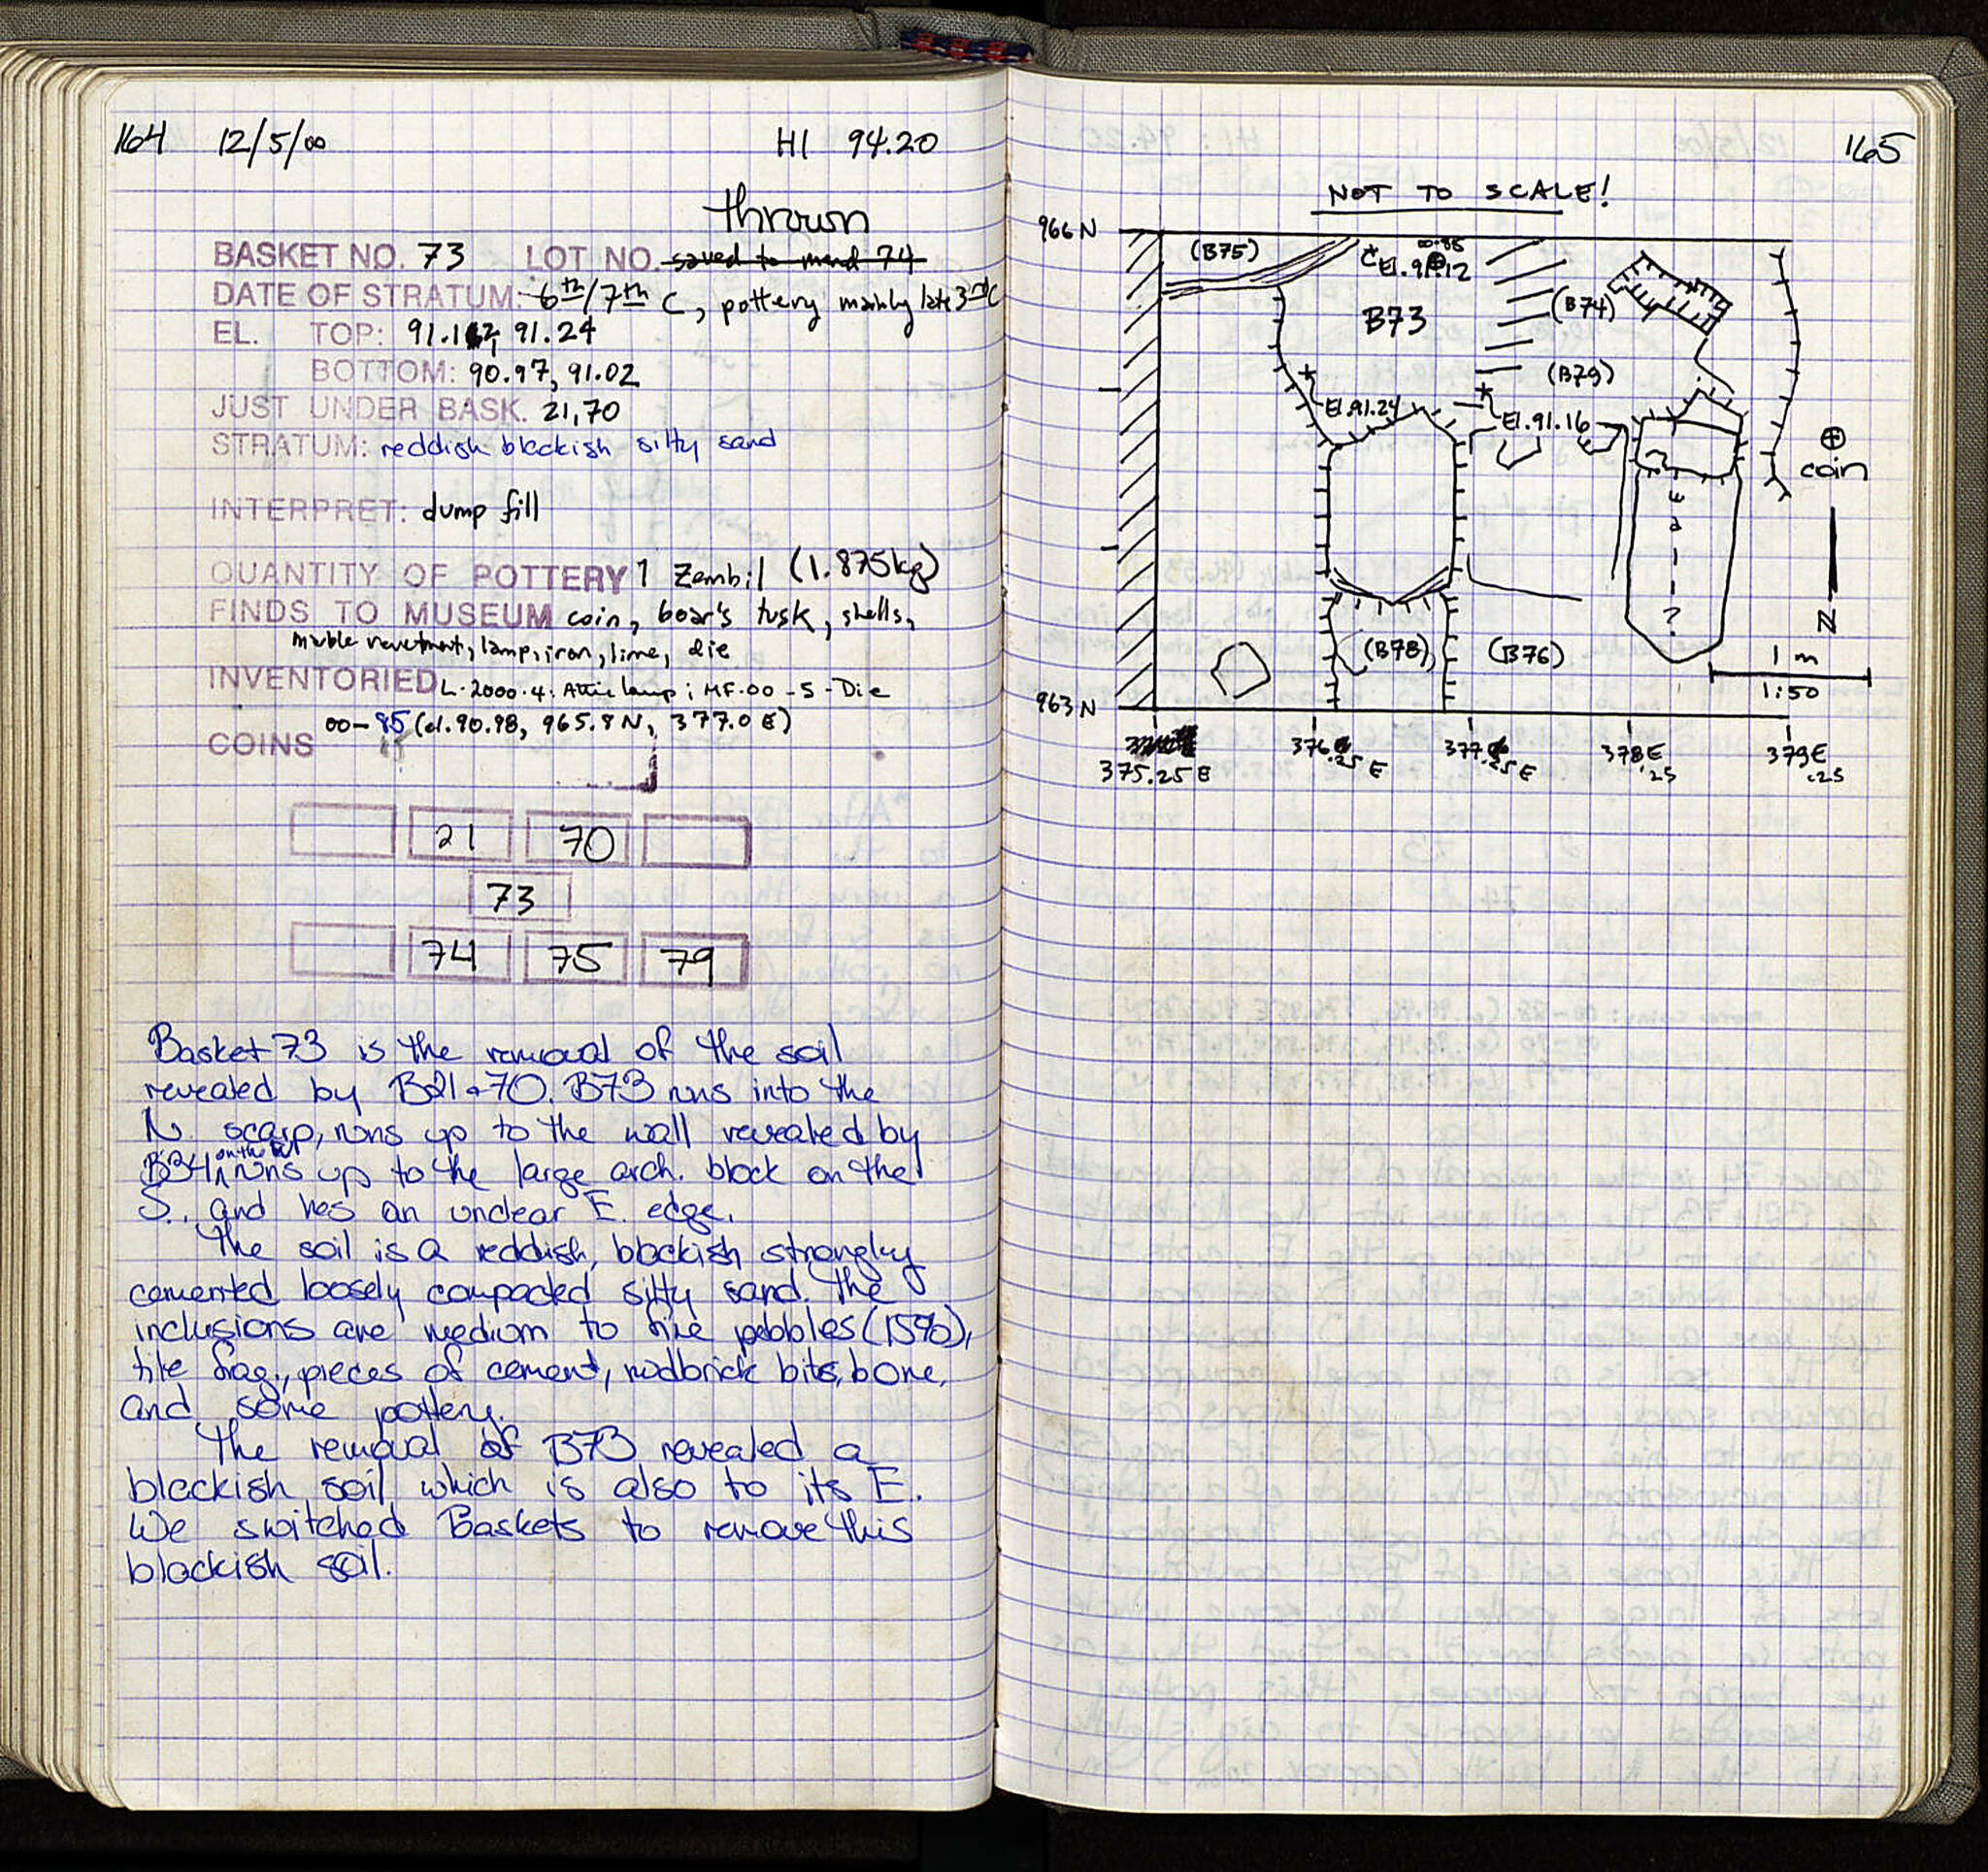 164 12/5/00 HI 94.20
thrown
BASKET NO. 73 LOT NO. saved to mend 74
DATE OF STRATUM: 6th/7th C, pottery mainly late 3rd C
EL. TOP: 91.12, 91.24
BOTTOM: 90.97, 91.02
JUST UNDER BASK. 21,70
STRATUM: reddish blackish silty sand
INTERPRET: dump fill
QUANTITY OF POTTERY 1 Zembil (1.875kg)
FINDS TO MUSEUM coin, boar's tusk, shells,
marble revetment, lamp, iron, lime, die
INVENTORIED L-2000-4: Attic lamp; MF-00-5-Die
00-85 (el. 90.98, 965.8 N, 377.0 E)
COINS
21 70
73
74 75 79
Basket 73 is the removal of the soil
revealed by B21+70. B73 runs into the
N. scarp, runs up to the wall revealed by
B34 on the W, runs up to the large arch. block on the
S., and has an unclear E. edge.
The soil is a reddish, blackish strongly
cemented loosely compacted silty sand. The
inclusions are medium to fine pebbles (15%),
tile frag., pieces of cement, mudbrick bits, bone,
and some pottery.
The removal of B73 revealed a
blackish soil which is also to its E.
We switched Baskets to remove this
blackish soil.
165
NOT TO SCALE!
966 N
(B75)
00-85
El. 91.12
B73
(B74)
(B79)
El. 91.24
El. 91.16
coin
wall
?
N
(B78)
(B76)
1 m
1:50
963 N
375.25 E
376.25 E
377.25 E
378E .25
379E .25